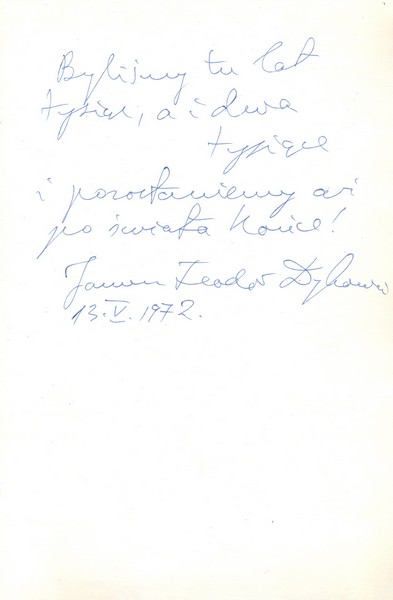 Byliśmy tu lat
tysiąc, a i dwa
tysiące
i pozostaniemy aż
po świata końce!
Janusz Teodor Dybowski
13.V.1972.